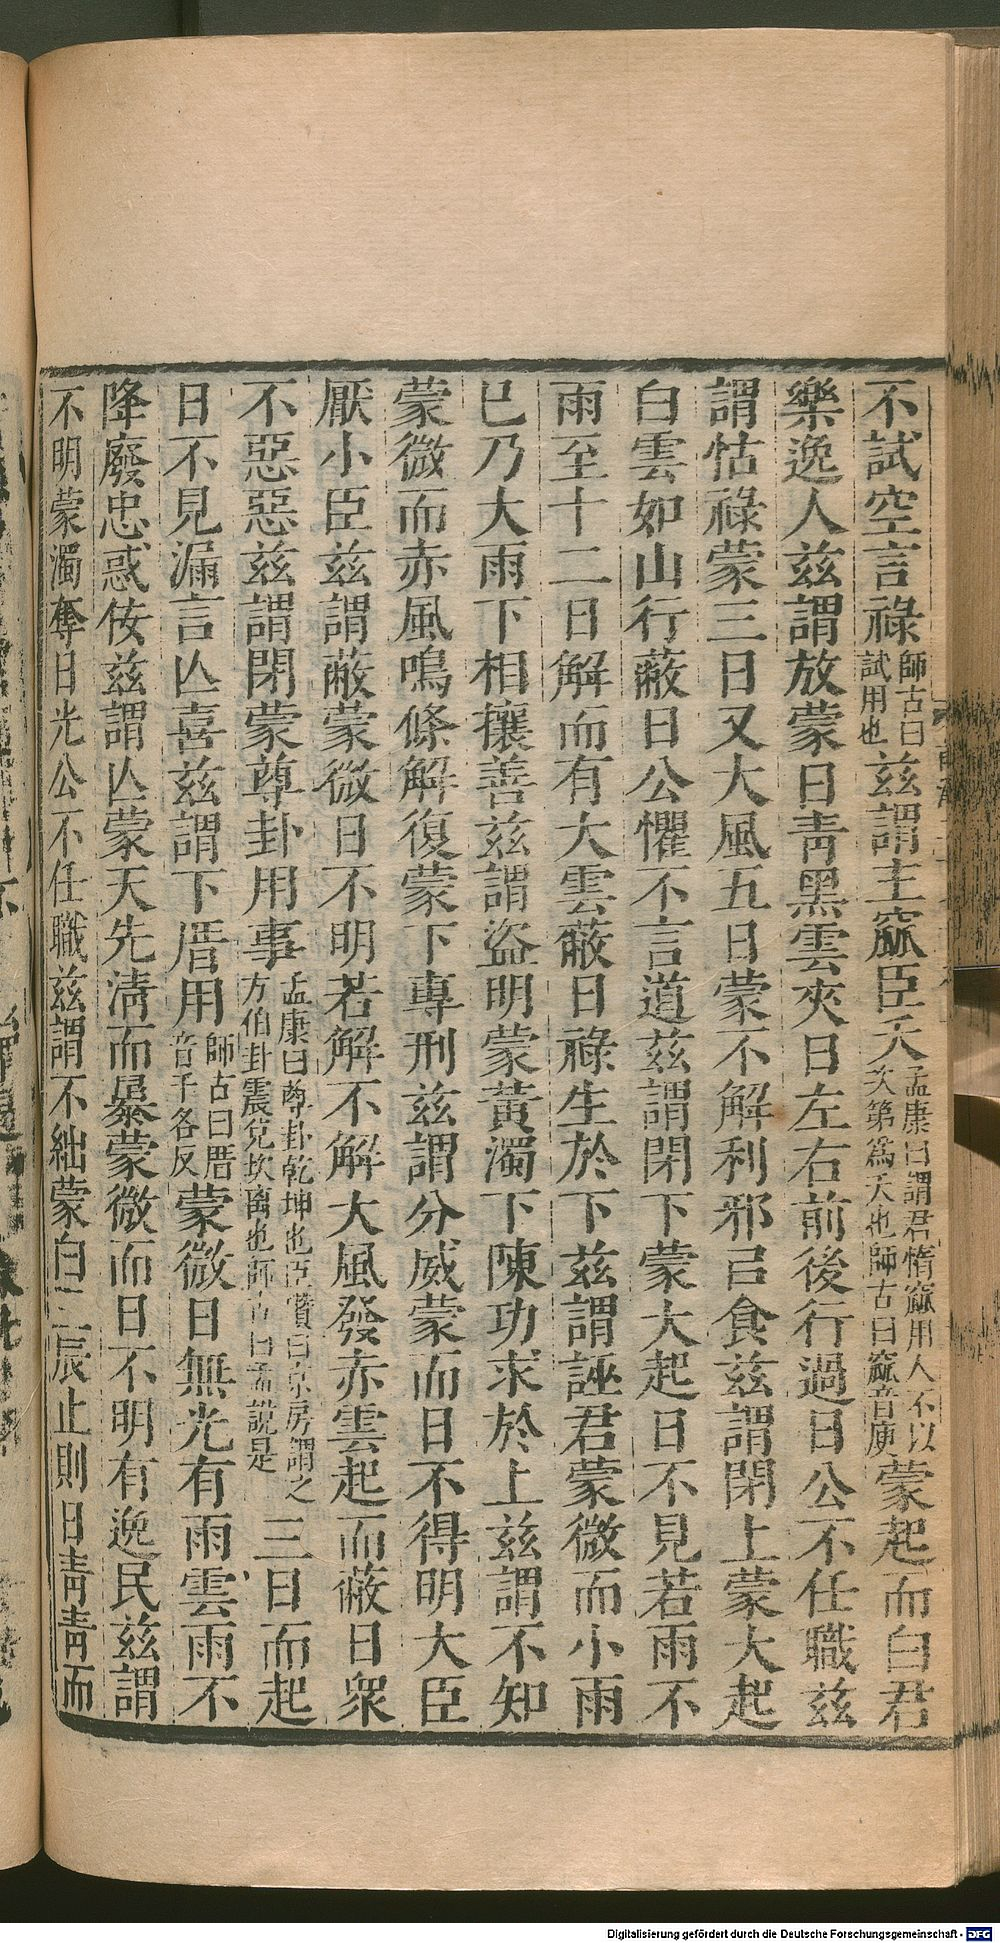 不試空言祿師古曰試用也兹謂主窳臣夭孟康曰謂君惰窳用人不以次第爲夭也師古曰窳音庾蒙起而白君
樂逸人兹謂放蒙日青黑雲夾日左右前後行過日公不任職兹
謂怙祿蒙三日又大風五日蒙不解利邪㠯食兹謂閉上蒙大起
白雲如山行蔽日公懼不言道兹謂閉下蒙大起日不見若雨不
雨至十二日解而有大雲蔽日祿生於下兹謂誣君蒙微而小雨
已乃大雨下相攘善兹謂盜明蒙黃濁下陳功求於上兹謂不知
蒙微而赤風鳴條解復蒙下專刑兹謂分威蒙而日不得明大臣
厭小臣兹謂蔽蒙微日不明若解不解大風發赤雲起而蔽日衆
不惡惡兹謂閉蒙尊卦用事孟康曰尊卦乾坤也臣瓚曰京房謂之方伯卦震兌坎离也師古曰孟說是三日而起
日不見漏言亾喜兹謂下厝用師古曰厝音千各反蒙微日無光有雨雲雨不
降廢忠惑佞兹謂亾蒙天先清而暴蒙微而日不明有逸民兹謂
不明蒙濁奪日光公不任職兹謂不絀蒙白三辰止則日青青而
Digitalisierung gefördert durch die Deutsche Forschungsgemeinschaft - DFG